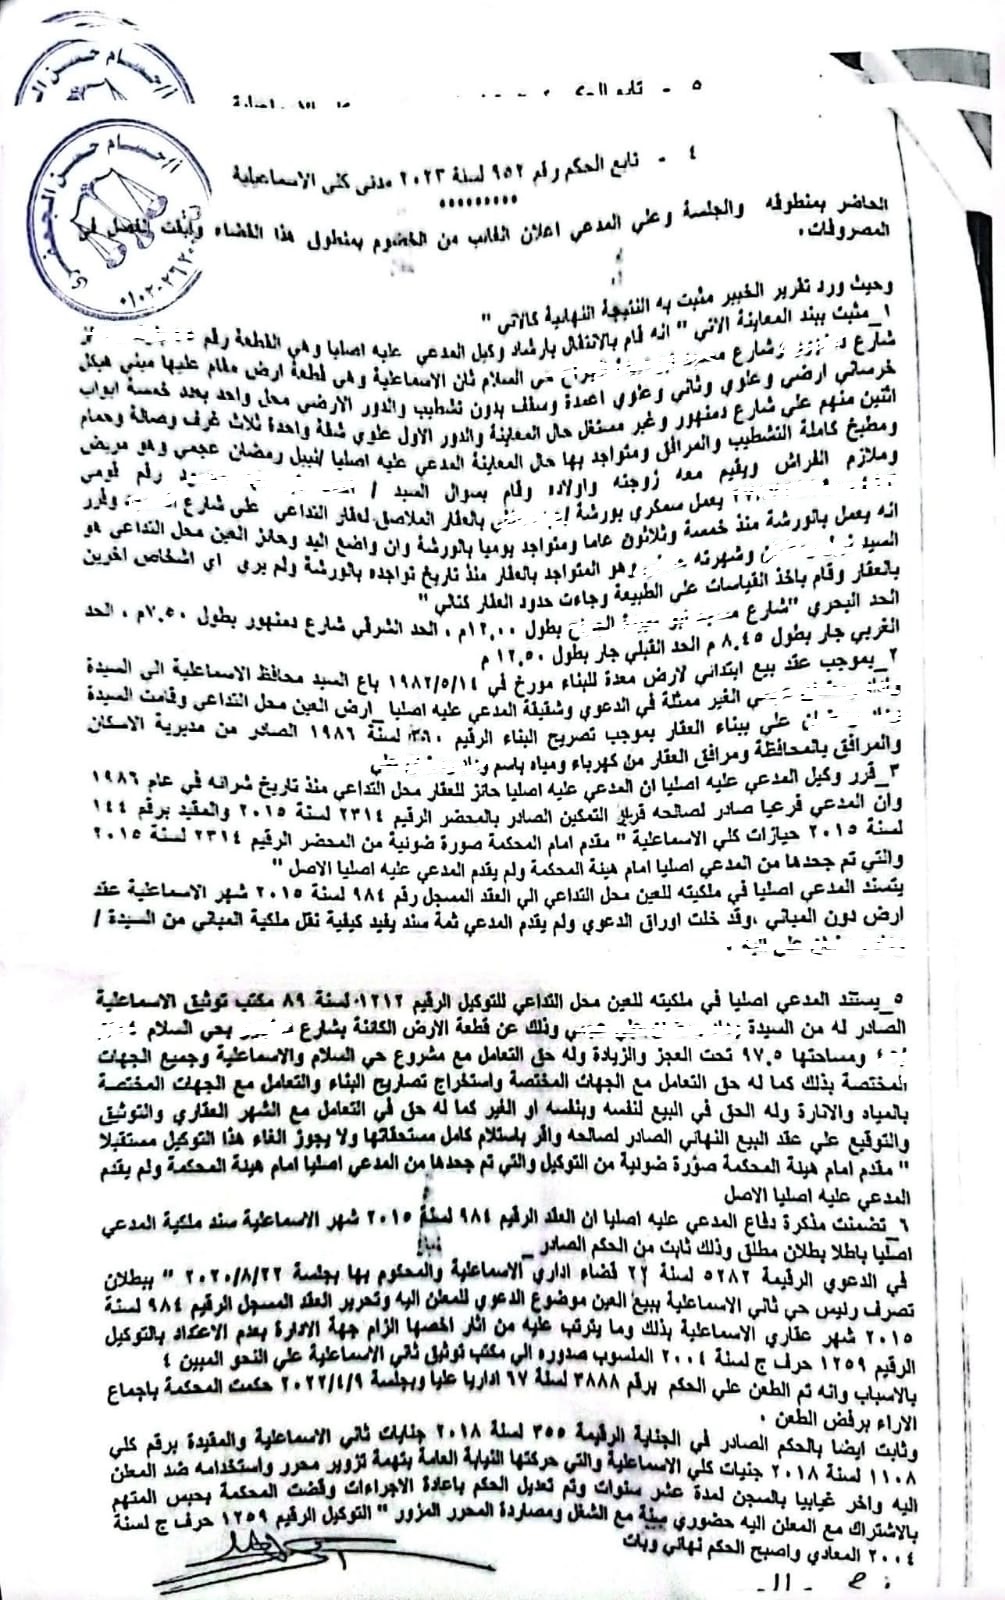 أ/حسام حسن ال
٥ - تابع الحكم
أ/حسام حسن الجعفري
٤ - تابع الحكم رقم ٩٥٢ لسنة ٢٠٢٣ مدنى كلى الاسماعيلية
•••••••••
الحاضر بمنطوقه والجلسة وعلي المدعي اعلان الغائب من الخصوم بمنطوق هذا القضاء وابقت الفصل في
المصروفات.
وحيث ورد تقرير الخبير مثبت به النتيجة النهائية كالاتي "
١_مثبت ببند المعاينة الاتي " انه قام بالانتقال بارشاد وكيل المدعي عليه اصليا وهي القطعة رقم
شارع دمنهور وشارع حي السلام ثان الاسماعلية وهي قطعة ارض مقام عليها مبني هيكل
خرساني ارضي وعلوي وثاني وعلوي اعمدة وسقف بدون تشطيب والدور الارضي محل واحد بعدد خمسة ابواب
اثنين منهم علي شارع دمنهور وغير مستغل حال المعاينة والدور الاول علوي شقة واحدة ثلاث غرف وصالة وحمام
ومطبخ كاملة التشطيب والمرافق ومتواجد بها حال المعاينة المدعي عليه اصليا /نبيل رمضان عجمي وهو مريض
وملازم الفراش ويقيم معه زوجته واولاده وقام بسوال السيد / رقم قومي
يعمل سمكري بورشة / بالعقار الملاصق لعقار التداعي علي شارع وقرر
انه يعمل بالورشة منذ خمسة وثلاثون عاما ومتواجد يوميا بالورشة وان واضع اليد وحائز العين محل التداعي هو
السيد وشهرته وهو المتواجد بالعقار منذ تاريخ تواجده بالورشة ولم يري اي اشخاص اخرين
بالعقار وقام باخذ القياسات علي الطبيعة وجاءت حدود العقار كتالي "
الحد البحري "شارع بطول ١٢,٠٠م ، الحد الشرقي شارع دمنهور بطول ٧,٥٠م ، الحد
الغربي جار بطول ٨,٤٥ م الحد القبلي جار بطول ١٢,٥٠ م
٢_بموجب عقد بيع ابتدائي لارض معدة للبناء مورخ في ١٩٨٢/٥/١٤ باع السيد محافظ الاسماعلية الي السيدة
الغير ممثلة في الدعوي وشقيقة المدعي عليه اصليا _ارض العين محل التداعي وقامت السيدة
علي ببناء العقار بموجب تصريح البناء الرقيم ٣٦٠ لسنة ١٩٨٦ الصادر من مديرية الاسكان
والمرافق بالمحافظة ومرافق العقار من كهرباء ومياه باسم علي
٣_قرر وكيل المدعي عليه اصليا ان المدعي عليه اصليا حائز للعقار محل التداعي منذ تاريخ شرائه في عام ١٩٨٦
وان المدعي فرعيا صادر لصالحه قرار التمكين الصادر بالمحضر الرقيم ٢٣١٤ لسنة ٢٠١٥ والمقيد برقم ١٤٤
لسنة ٢٠١٥ حيازات كلي الاسماعلية " مقدم امام المحكمة صورة ضوئية من المحضر الرقيم ٢٣١٤ لسنة ٢٠١٥
والتي تم جحدها من المدعي اصليا امام هيئة المحكمة ولم يقدم المدعي عليه اصليا الاصل "
يتسند المدعي اصليا في ملكيته للعين محل التداعي الي العقد المسجل رقم ٩٨٤ لسنة ٢٠١٥ شهر الاسماعلية عقد
ارض دون المباني ،وقد خلت اوراق الدعوي ولم يقدم المدعي ثمة سند يفيد كيفية نقل ملكية المباني من السيدة /
٥_يستند المدعي اصليا في ملكيته للعين محل التداعي للتوكيل الرقيم ١٢١٢ لسنة ٨٩ مكتب توثيق الاسماعلية
الصادر له من السيدة وذلك عن قطعة الارض الكائنة بشارع بحي السلام
ومساحتها ٩٧,٥ تحت العجز والزيادة وله حق التعامل مع مشروع حي السلام والاسماعلية وجميع الجهات
المختصة بذلك كما له حق التعامل مع الجهات المختصة واستخراج تصاريح البناء والتعامل مع الجهات المختصة
بالمياه والانارة وله الحق في البيع لنفسه وبنفسه او الغير كما له حق في التعامل مع الشهر العقاري والتوثيق
والتوقيع علي عقد البيع النهائي الصادر لصالحه واقر باستلام كامل مستحقاتها ولا يجوز الغاء هذا التوكيل مستقبلا
" مقدم امام هيئة المحكمة صورة ضوئية من التوكيل والتي تم جحدها من المدعي اصليا امام هيئة المحكمة ولم يقدم
المدعي عليه اصليا الاصل
٦_تضمنت مذكرة دفاع المدعي عليه اصليا ان العقد الرقيم ٩٨٤ لسنة ٢٠١٥ شهر الاسماعلية سند ملكية المدعي
اصليا باطلا بطلان مطلق وذلك ثابت من الحكم الصادر _
في الدعوي الرقيمة ٥٢٨٢ لسنة ٢٢ قضاء اداري الاسماعلية والمحكوم بها بجلسة ٢٠٢٠/٨/٢٢ " ببطلان
تصرف رئيس حي ثاني الاسماعلية ببيع العين موضوع الدعوي للمعلن اليه وتحرير العقد المسجل الرقيم ٩٨٤ لسنة
٢٠١٥ شهر عقاري الاسماعلية بذلك وما يترتب عليه من اثار اخصها الزام جهة الادارة بعدم الاعتداد بالتوكيل
الرقيم ١٢٥٩ حرف ج لسنة ٢٠٠٤ المنسوب صدوره الي مكتب توثيق ثاني الاسماعلية علي النحو المبين ٤
بالاسباب وانه تم الطعن علي الحكم برقم ٣٨٨٨ لسنة ٦٧ اداريا عليا وبجلسة ٢٠٢٢/٤/٩ حكمت المحكمة باجماع
الاراء برفض الطعن .
وثابت ايضا بالحكم الصادر في الجناية الرقيمة ٣٥٥ لسنة ٢٠١٨ جنايات ثاني الاسماعلية والمقيدة برقم كلي
١١٠٨ لسنة ٢٠١٨ جنيات كلي الاسماعلية والتي حركتها النيابة العامة بتهمة تزوير محرر واستخدامه ضد المعلن
اليه واخر غيابيا بالسجن لمدة عشر سنوات وتم تعديل الحكم باعادة الاجراءات وقضت المحكمة بحبس المتهم
بالاشتراك مع المعلن اليه حضوري سنة مع الشغل ومصادرة المحرر المزور " التوكيل الرقيم ١٢٥٩ حرف ج لسنة
٢٠٠٤ المعادي واصبح الحكم نهائي وبات